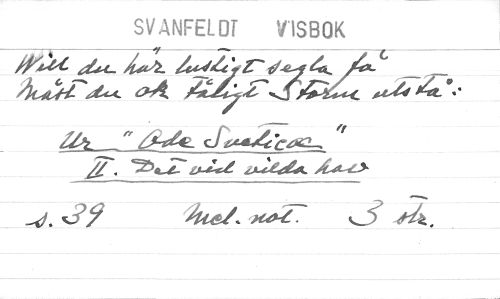 SVANFELDT VISBOK
Will du här lustigt segla få
Måst du ok tåligt Storm utstå:
Ur "Ode Sveticae"
II. Det vid vilda hav
s. 39 Mel. not. 3 str.